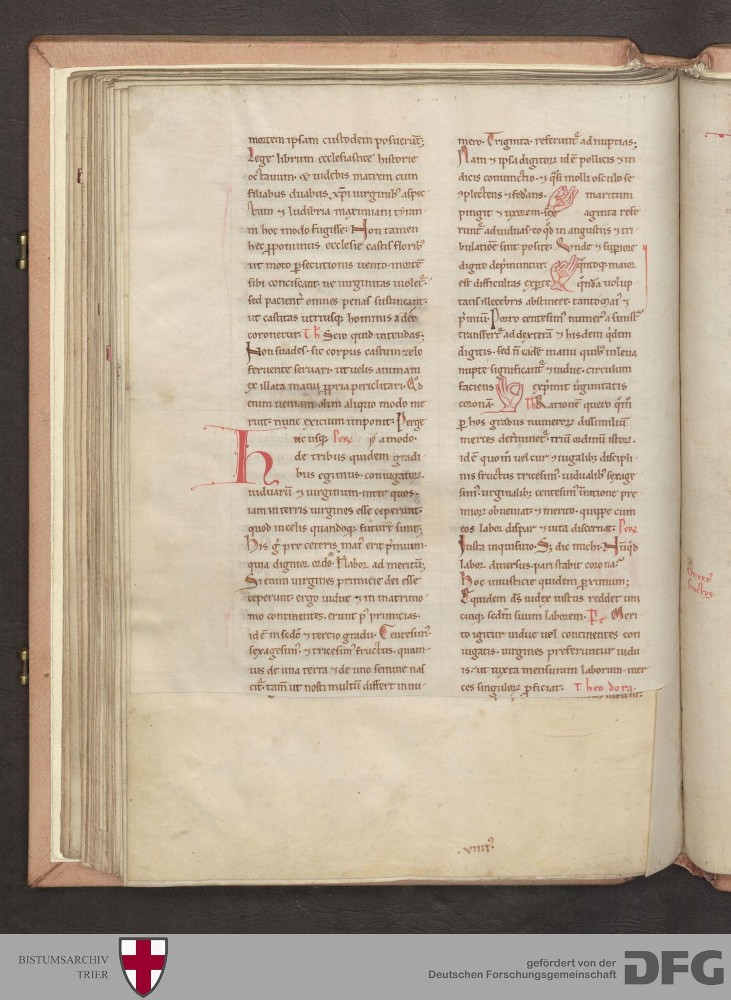 mortem ipsam custodem posuerūt;
Lege librum ecclesiastice historie
octauum. & uidebis matrem cum
filiabus duabus xp̄i uirginib; aspec
tum & ludibria maximiani tyran
ni hoc modo fugisse. Non tamen
hec ꝓponimus ecclesie castis florib;
ut moto ꝑsecutionis uento. mortē
sibi consciscant. ne uirginitas uioletᷣ.
sed pacienter omnes penas sustineant.
ut castitas utriusque hominis a deo
coronetur. Th̄ Scio quid intendas;
Non suades. sic corpus castum zelo
feruente seruari. ut uelis animam
ex illata manu ꝓpria periclitari. Qđ
enim ueniam olim aliquo modo me
ruit. nunc exicium imponit. Perge
nunc usq; Per a modo.
Hic de tribus quidem gradi
bus egimus. coniugatorꝝ.
uiduarū & uirginum. inter quos
iam in terris uirgines esse ceperunt.
quod in celis quandoq; future sunt;
His g̊ pre ceteris mai᷒ erit p̄mium.
quia dignior ordo. Th̄ labor ad meritū;
Si enim uirgines primicie dei esse
ceperunt. ergo uidue & in matrimo
nio continentes. erunt p᷒ primicias.
idē in scđo & tercio gradu. Centesim᷒.
sexagesim᷒. & tricesim᷒ fructus. quam
uis de una terra & de uno semine nas
citᷣ. tam̄ ut nosti multū differt in nu
mero. Triginta referuntᷣ ad nuptias;
Nam & ipsa digitorꝝ idē pollicis & in
dicis coniunctio. & qͣsi molli osculo se
ꝯplectens & fedans. maritum
pingit & uxorem. Sex aginta refe
runtᷣ ad uiduas. eo qđ in angustijs & tri
bulatiōe sint posite. Unde & supiore
digito deprimuntur. qntoq; maior
est difficultas exꝑte qͦnda uolup
tatis illecebris abstinere. tanto mai᷒ &
p̄miū. Porro centesim᷒ numer᷒ a sinistͣ
transfertᷣ ad dexterā & hisdem qͥdem
digitis. sed n̄ eadē manu quib; in leua
nupte significantᷣ & uidue. circulum
faciens exprimit uirginitatis
coronā. Th̄ Rationē quero qm̄
ꝑ hos gradus numerorꝝ dissimiliū
merces det̄minetᷣ. triū ordinū istorꝝ.
idē quom̄ uel cur ꝯiugalib; discipli
nis fructus tricesim᷒. uidualib; sexage
sim᷒. uirginalib; centesim᷒ iunctione pre
mior obueniat & merito. quippe cum
eos labor dispar & uita discernat. Per
Iusta inquisitio. Sꝫ dic michi. Nūqͥd
labor diuersus. pari stabit corona?
Hoc iniusticie quidem ꝓximum;
Equidem ds̄ iudex iustus reddet uni
cuiq; scđm suum laborem. Pe Meri
to igitur uidue uel continentes con
iugatis. uirgines preferuntur uidu
is. ut iuxta mensuram laborum. mer
ces singulorꝝ ꝓficiat. Theodora.
.viiii᷒.
BISTUMSARCHIV
TRIER
gefördert von der
Deutschen Forschungsgemeinschaft
DFG